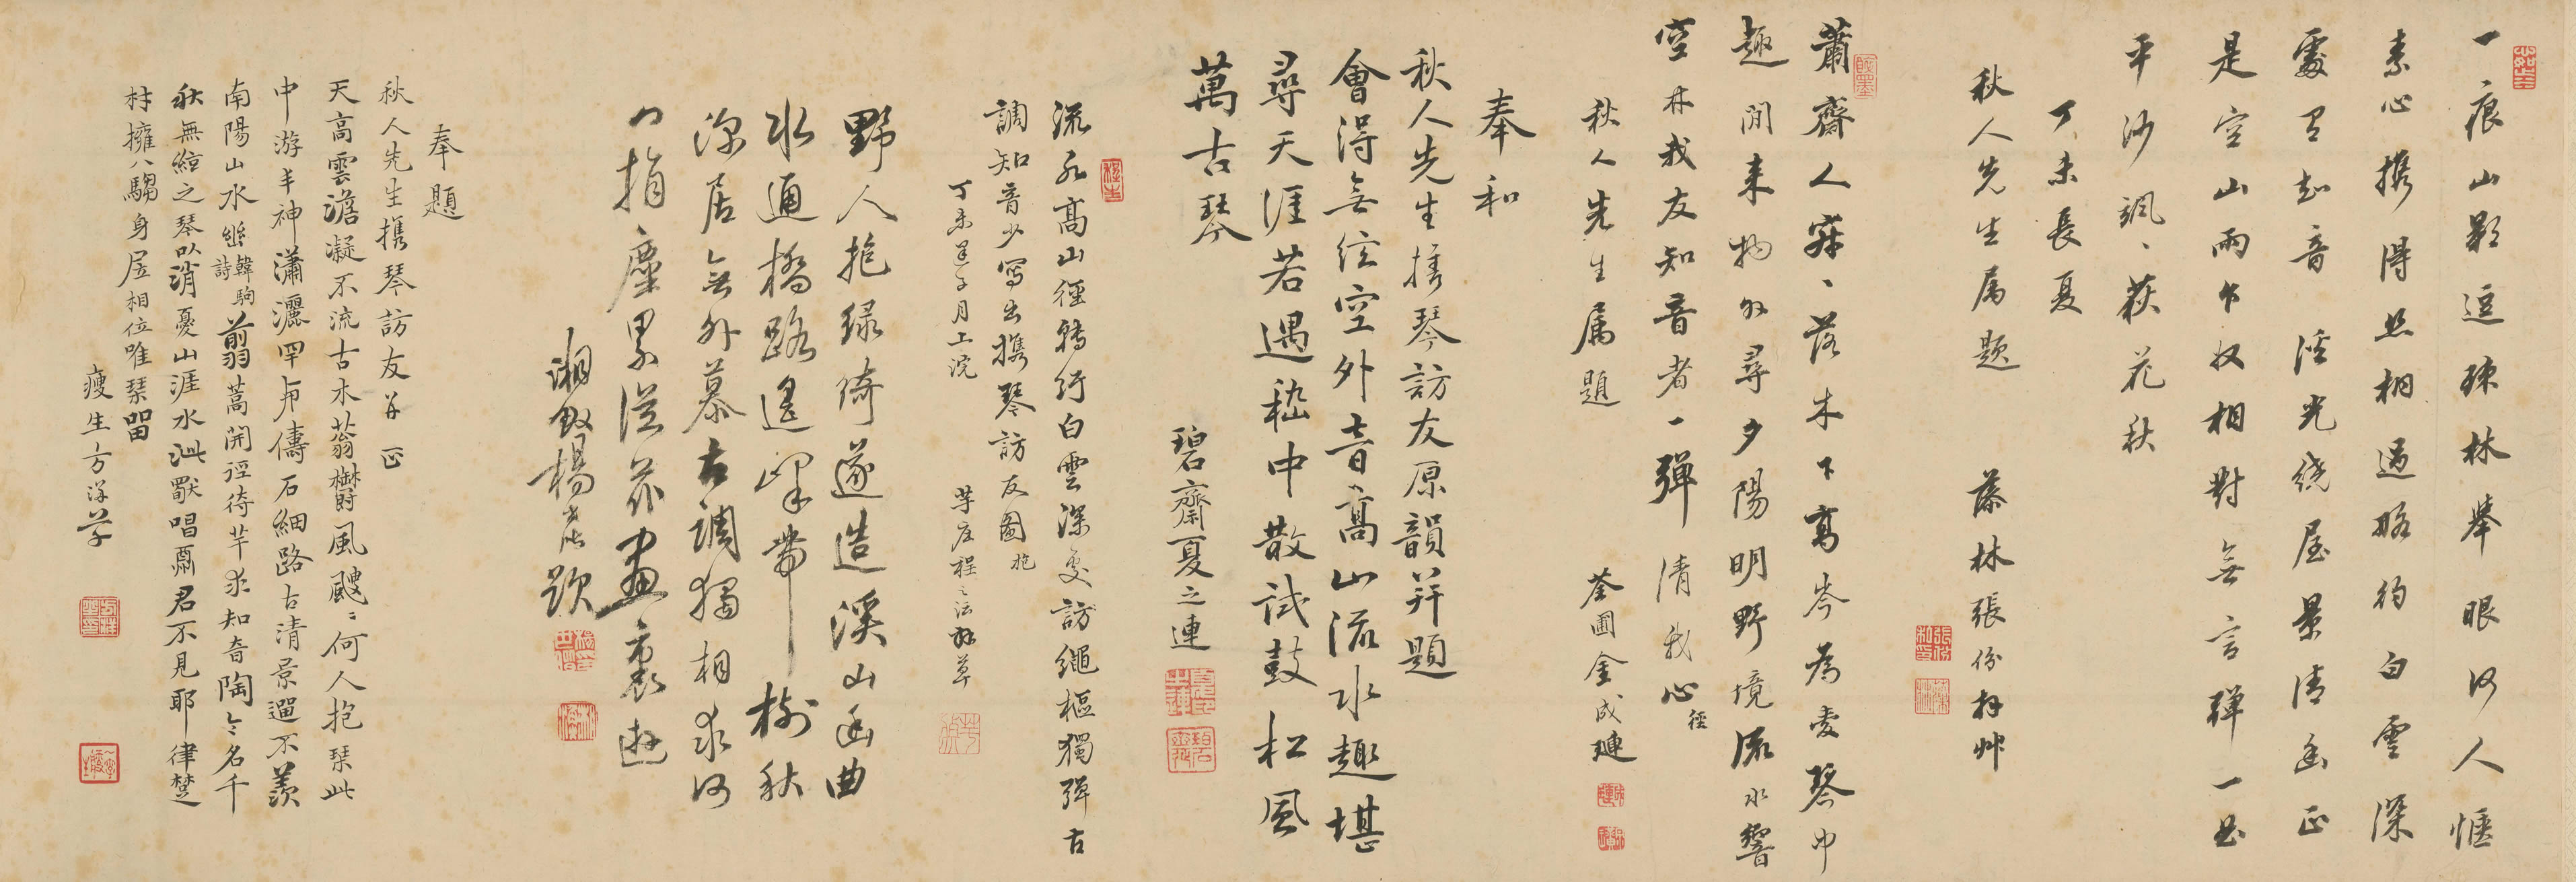 一痕山影逗疎林舉眼何人愜
素心携得焦桐過略彴白雲深
處有知音 溪光繞屋景清幽正
是空山雨乍收相對無言彈一曲
平沙颯、荻花秋
丁未長夏
秋人先生属題 藤林張份拜艸
蕭齋人寂、落木下高岑為愛琴中
趣閒来物外尋夕陽明野境流水響
空林我友知音者一彈清我心 徑
秋人先生属題 荃圃金成璉
奉和
秋人先生携琴訪友原韻并題
會得無絃空外音高山流水趣堪
尋天涯若遇嵇中散試鼓松風
萬古琴 碧齋夏之連
流水高山徑轉行白雲深處訪繩樞獨彈古
調知音少寫出携琴訪友圖
丁未 子月上浣 芋庄程之 草
野人抱緑綺遂造溪山幽曲
水通橋路遥峰帶樹秋
深居無外慕古調獨相求何
指塵累從茲畫裏遊
湘 楊 題
奉題
秋人先生携琴訪友并正
天高雲澹凝不流古木蓊欝風颼、何人抱琴此
中游丰神瀟灑罕與儔石細路古清景遲不羨
南陽山水幽 韓駒詩 翦蒿開逕待羊求知音陶令名千
秋無絃之琴以消憂山涯水涘歌唱酬君不見耶律楚
材擁八騶身居相位唯琴留
瘦生方 草